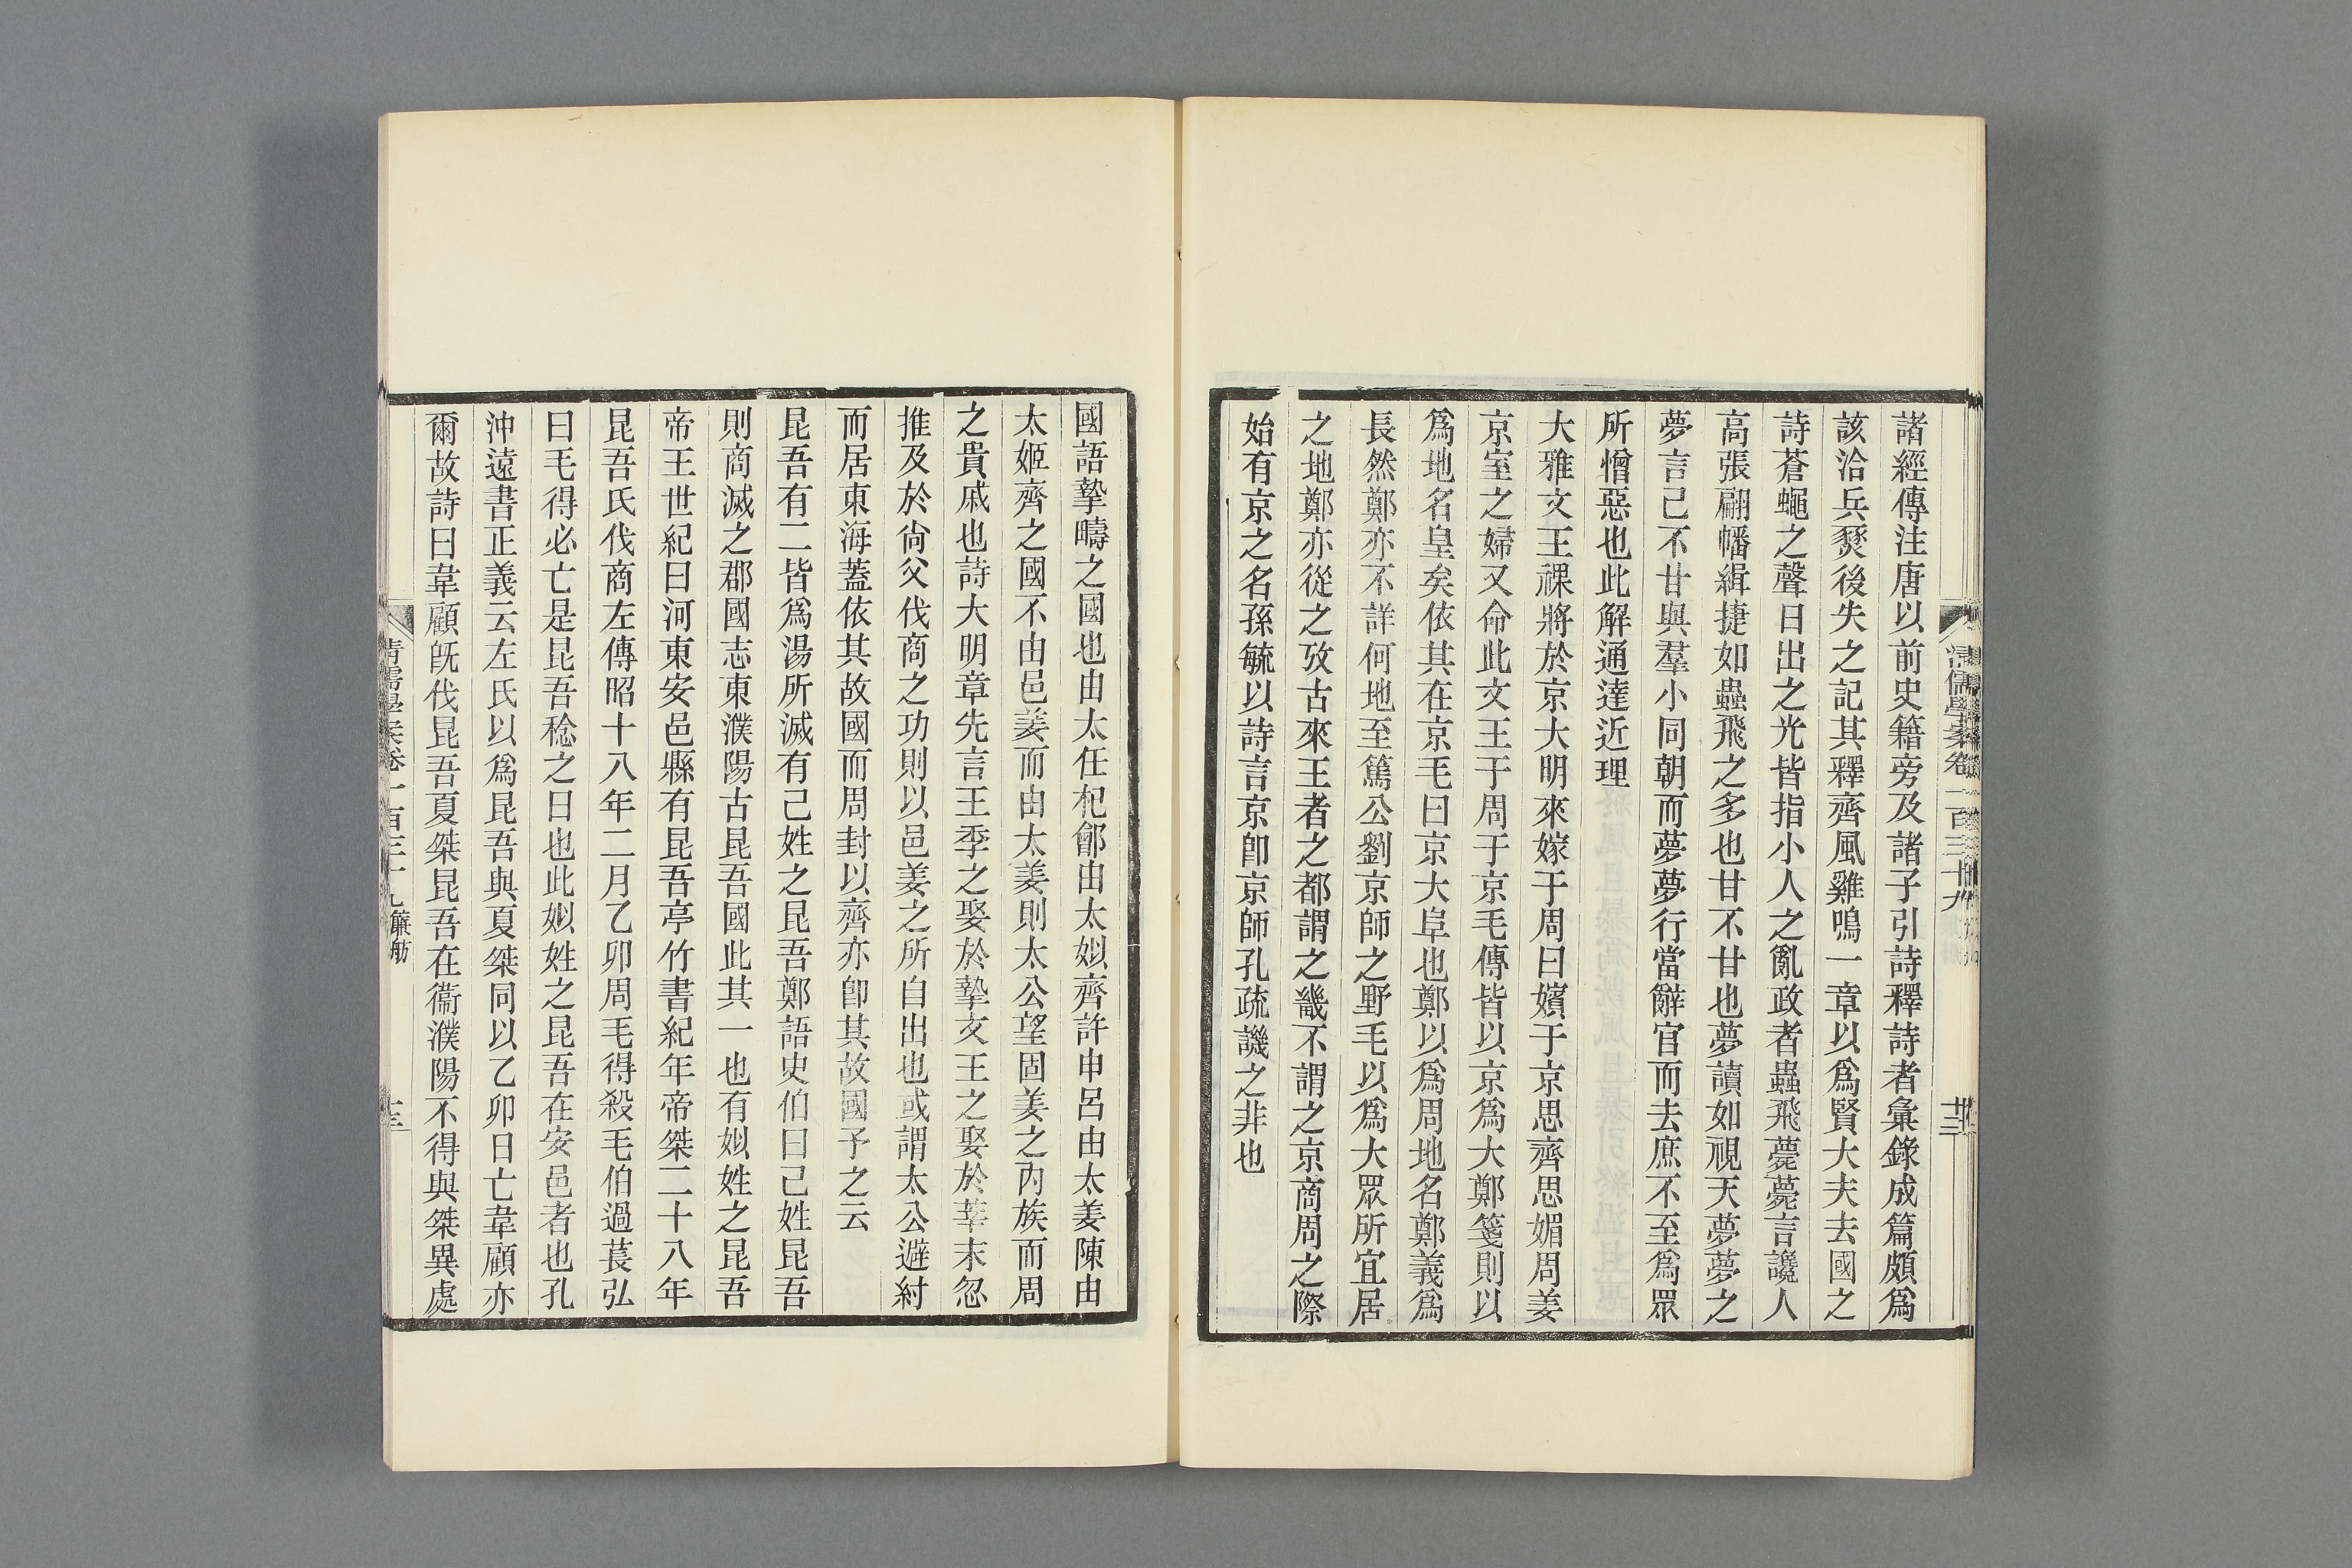 清儒學案卷一百三十九
諸經傳注唐以前史籍旁及諸子引詩釋詩者彙錄成篇頗爲
該洽兵燹後失之記其釋齊風雞鳴一章以爲賢大夫去國之
詩蒼蠅之聲日出之光皆指小人之亂政者蟲飛薨薨言讒人
高張翩幡緝捷如蟲飛之多也甘不甘也夢讀如視天夢夢之
夢言己不甘與羣小同朝而夢夢行當辭官而去庶不至爲眾
所憎惡也此解通達近理
大雅文王祼將於京大明來嫁于周曰嬪于京思齊思媚周姜
京室之婦又命此文王于周于京毛傳皆以京爲大鄭箋則以
爲地名皇矣依其在京毛曰京大阜也鄭以爲周地名鄭義爲
長然鄭亦不詳何地至篤公劉京師之野毛以爲大眾所宜居
之地鄭亦從之攷古來王者之都謂之畿不謂之京商周之際
始有京之名孫毓以詩言京卽京師孔疏譏之非也
國語摯疇之國也由太任杞鄫由太姒齊許申呂由太姜陳由
太姬齊之國不由邑姜而由太姜則太公望固姜之丙族而周
之貴戚也詩大明章先言王季之娶於摯文王之娶於莘末忽
推及於尙父伐商之功則以邑姜之所自出也或謂太公避紂
而居東海蓋依其故國而周封以齊亦卽其故國予之云
昆吾有二皆爲湯所滅有己姓之昆吾鄭語史伯曰己姓昆吾
則商滅之郡國志東濮陽古昆吾國此其一也有姒姓之昆吾
帝王世紀曰河東安邑縣有昆吾亭竹書紀年帝桀二十八年
昆吾氏伐商左傳昭十八年二月乙卯周毛得殺毛伯過萇弘
曰毛得必亡是昆吾稔之日也此姒姓之昆吾在安邑者也孔
沖遠書正義云左氏以爲昆吾與夏桀同以乙卯日亡韋顧亦
爾故詩曰韋顧旣伐昆吾夏桀昆吾在衞濮陽不得與桀異處
清儒學案卷一百三十九 簾舫